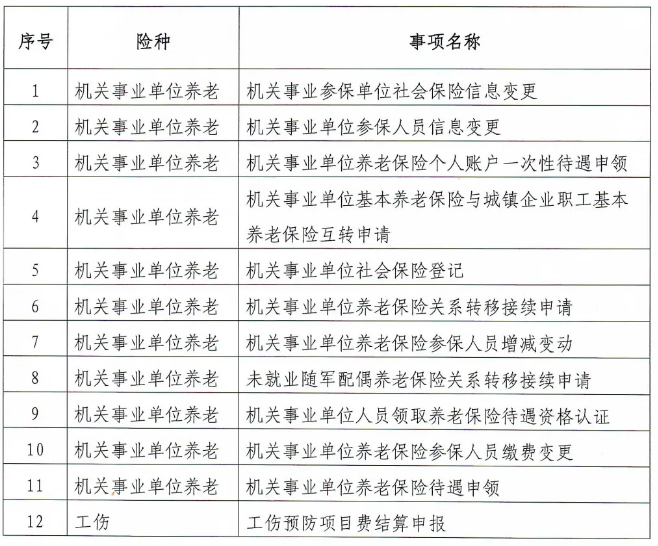 序号 险种 事项名称
1 机关事业单位养老 机关事业参保单位社会保险信息变更
2 机关事业单位养老 机关事业单位参保人员信息变更
3 机关事业单位养老 机关事业单位养老保险个人账户一次性待遇申领
4 机关事业单位养老 机关事业单位基本养老保险与城镇企业职工基本
养老保险互转申请
5 机关事业单位养老 机关事业单位社会保险登记
6 机关事业单位养老 机关事业单位养老保险关系转移接续申请
7 机关事业单位养老 机关事业单位养老保险参保人员增减变动
8 机关事业单位养老 未就业随军配偶养老保险关系转移接续申请
9 机关事业单位养老 机关事业单位人员领取养老保险待遇资格认证
10 机关事业单位养老 机关事业单位养老保险参保人员缴费变更
11 机关事业单位养老 机关事业单位养老保险待遇申领
12 工伤 工伤预防项目费结算申报